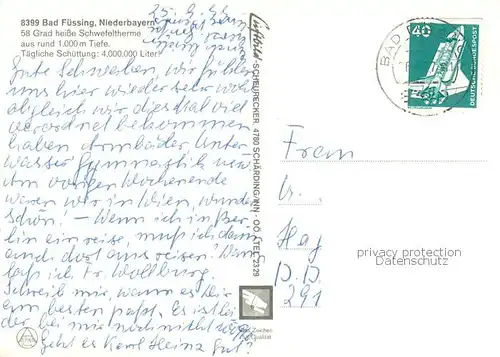 8399 Bad Füssing, Niederbayern
58 Grad heiße Schwefeltherme
aus rund 1.000 m Tiefe.
Tägliche Schüttung: 4,000.000 Liter!
25.9.
Gute Schwester, wir fühlen
uns hier wieder sehr wohl
obgleich wir diesmal viel
verordnet bekommen
haben Armbäder Unter
wasser Gymnastik usw.
Am vorigen Wochenende
waren wir in Wien, wunder
schön! – Wenn ich in Ber
lin einreise, muß ich dann
auch dort ausreisen? Dann
laß ich Fr. Wollburg.
Schreib mir, wann es Dir
am besten paßt. Es ist
der bei mir noch nicht
Geht es Karl Heinz gut?
Luftbild-SCHEURECKER 4780 SCHÄRDING/INN - OÖ. - TEL. 2329
BAD
40
DEUTSCHE BUNDESPOST
Frem
Hag
D.D.
291
privacy protection
Datenschutz
Zeichen
Qualität